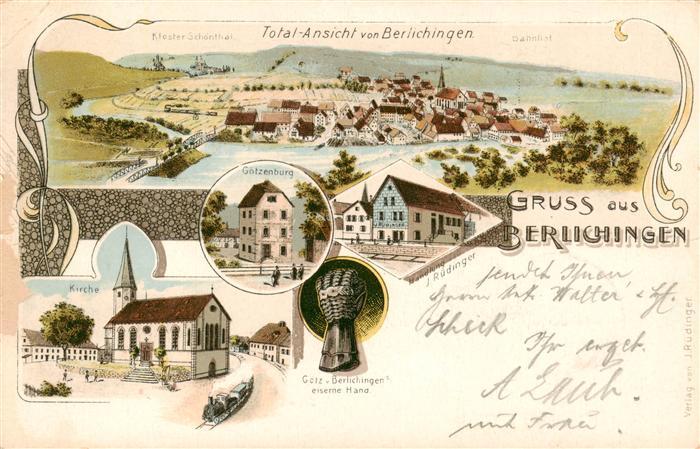 Total-Ansicht von Berlichingen.
Kloster Schönthal.
Bahnhof
Götzenburg
Handlung
J. Rüdinger
J. RÜDINGER
GRUSS aus
BERLICHINGEN
Kirche
Götz v. Berlichingen's
eiserne Hand.
sendet Ihnen
Herrn Walter
Scheck
Ihr ergeb.
A Laub.
mit Frau.
Verlag von J. Rüdinger